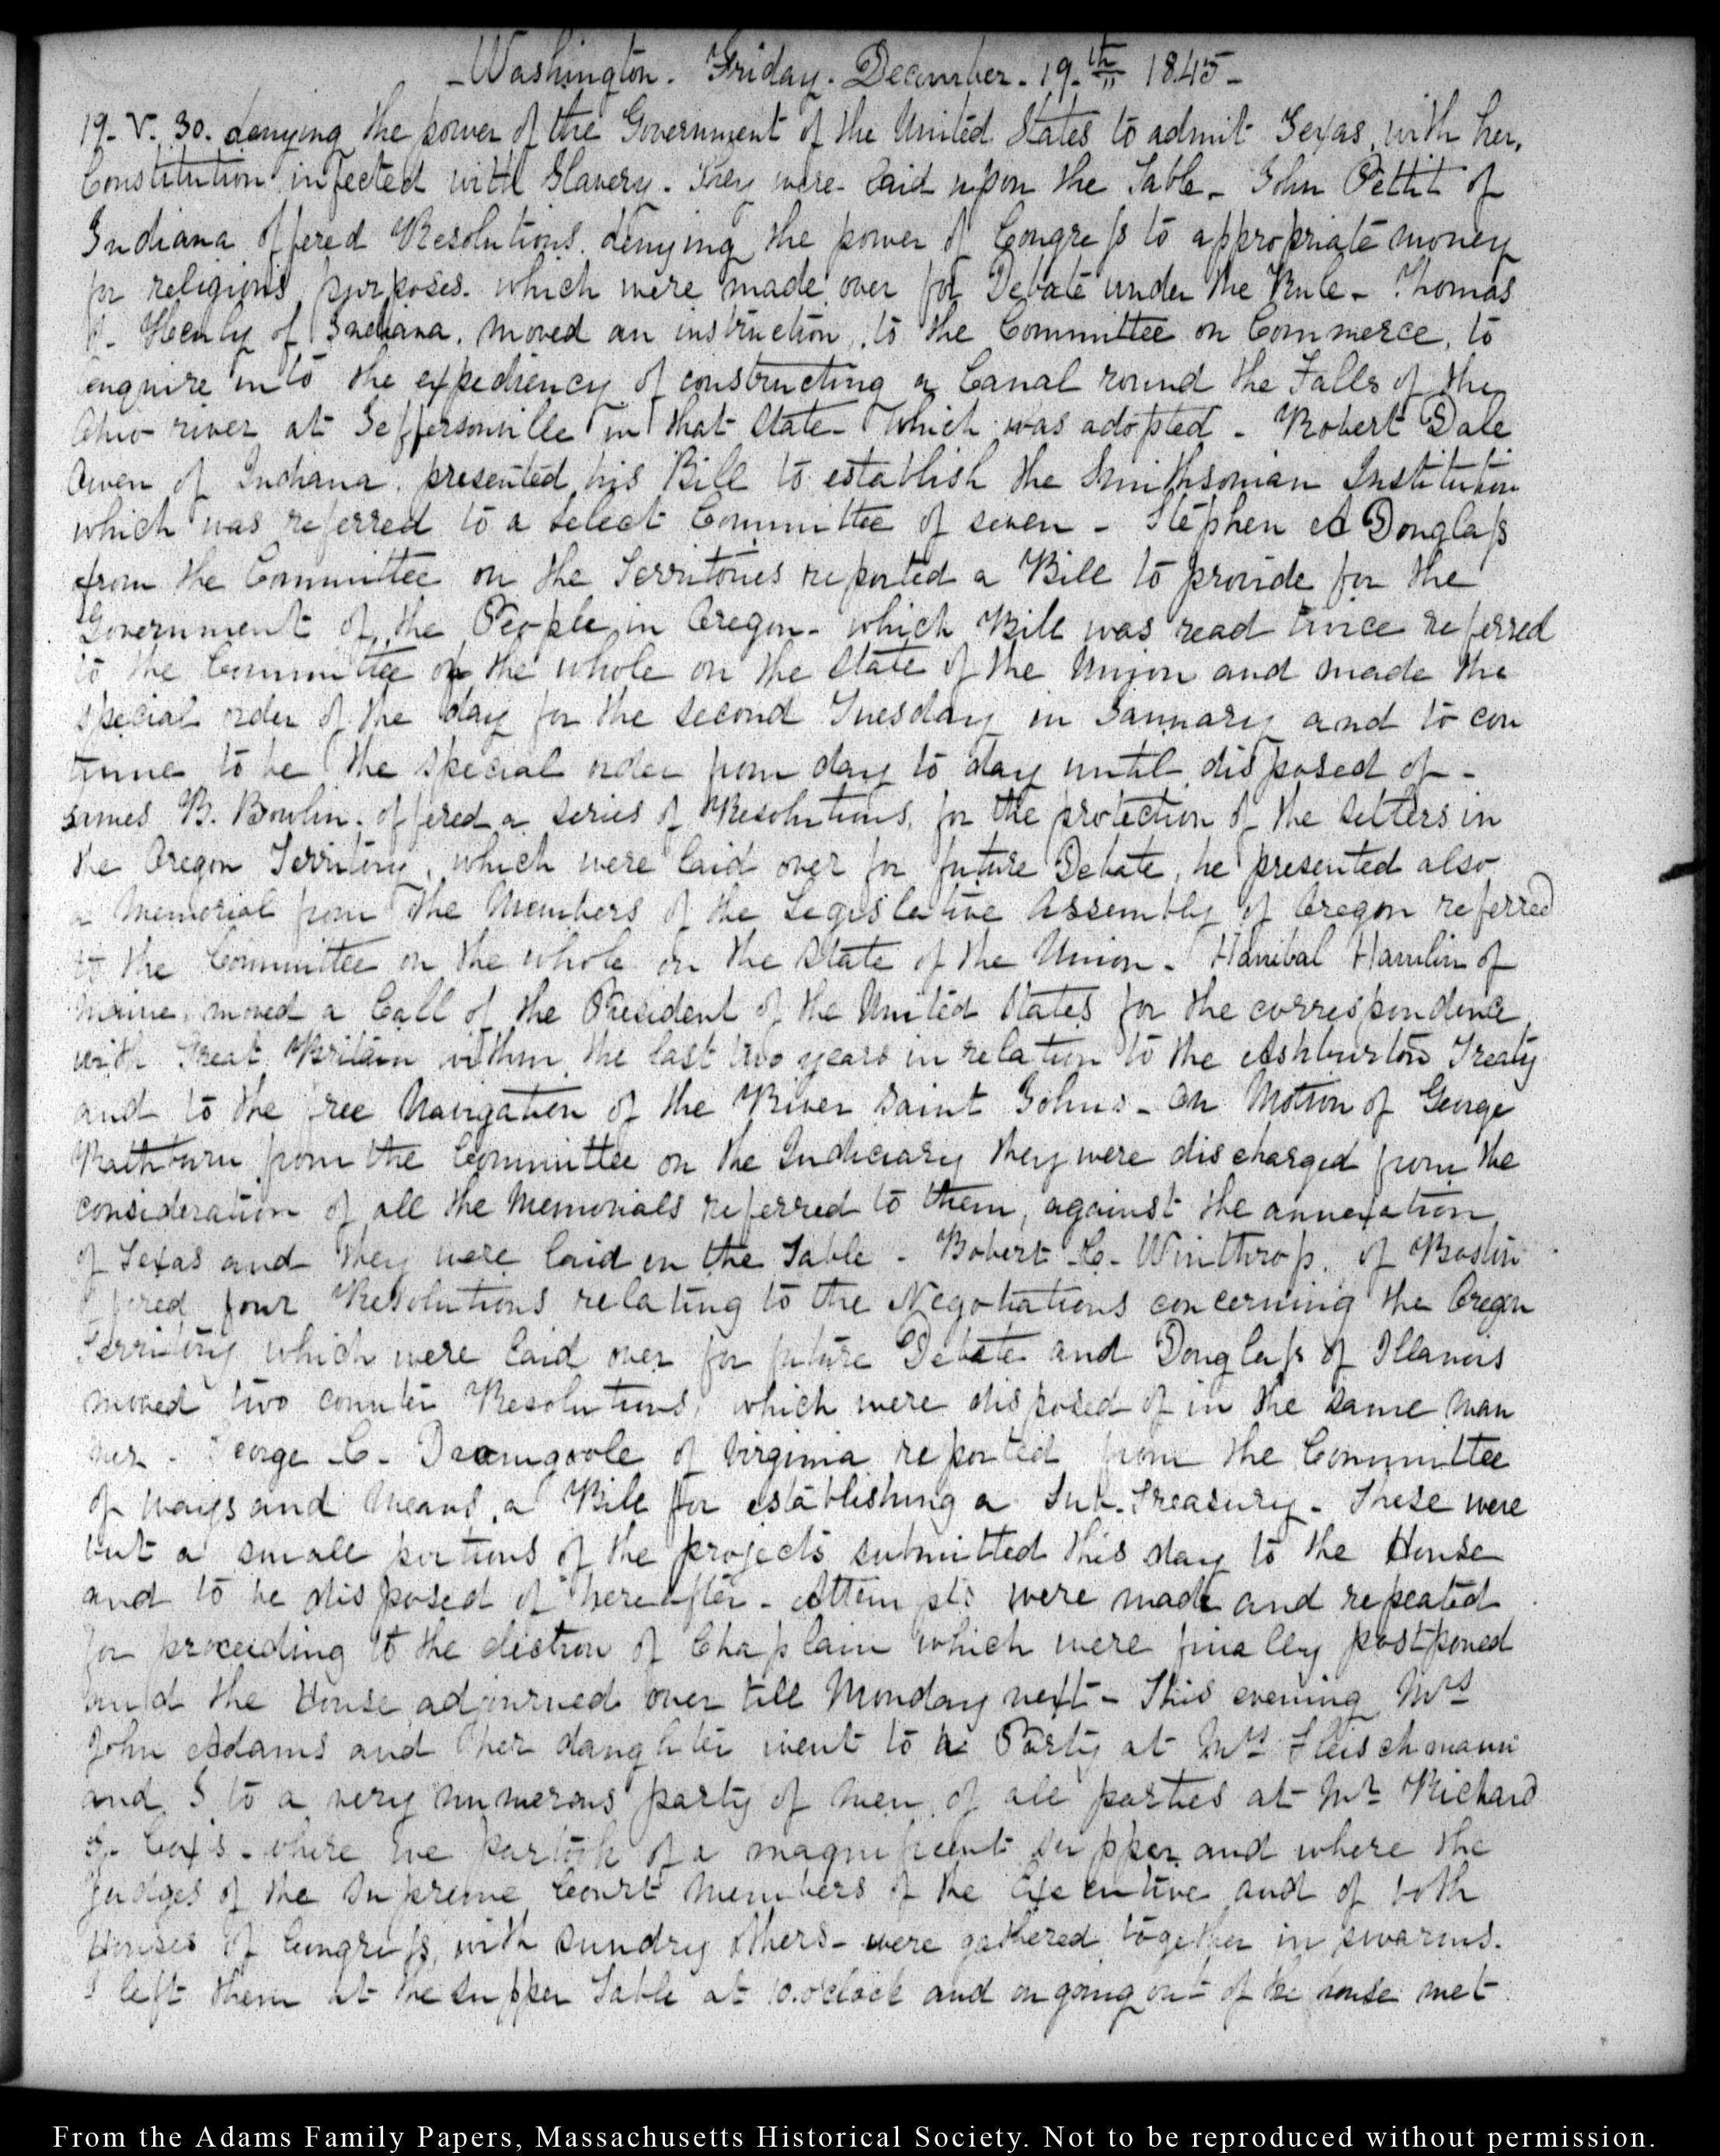 Washington. Friday. December. 19th 1845
19. V. 30. denying the power of the Government of the United States to admit Texas, with her,
Constitution infected with Slavery. They were laid upon the Table. John Pettit of
Indiana offered Resolutions denying the power of Congress to appropriate money
for religious purposes. which were made over for Debate under the Rule. Thomas
Henly of Indiana. moved an instruction, to the Committee on Commerce, to
enquire into the expediency of constructing a Canal round the Falls of the
Ohio river at Jeffersonville in that State which was adopted. Robert Dale
Owen of Indiana. presented his Bill to establish the Smithsonian Institution
which was referred to a select Committee of seven. Stephen A Douglass
from the Committee on the Territories reported a Bill to provide for the
Government of the People in Oregon. which Bill was read twice referred
to the Committee of the whole on the state of the Union and made the
special order of the day for the second Tuesday in January and to con
tinue to be the special order from day to day until disposed of.
James B. Bowlin. offered a series of Resolutions, for the protection of the settlers in
the Oregon Territory, which were laid over for future Debate, he presented also
a Memorial from the Members of the Legislative Assembly of Oregon referred
to the Committee on the whole on the State of the Union. Hanibal Hamlin of
Maine, moved a Call of the President of the United States for the correspondence
with Great Britain within the last two years in relation to the Ashburton Treaty
and to the free Navigation of the River Saint Johns. On Motion of George
Rathburn from the Committee on the Judiciary they were discharged from the
consideration of all the Memorials referred to them, against the annexation
of Texas and they were laid on the Table. Robert C. Winthrop. of Boston
offered four Resolutions relating to the Negotiations concerning the Oregon
Territory which were laid over for future Debate and Douglass of Illanois
moved two counter Resolutions, which were disposed of in the same man
ner. George C. Dromgoole of Virginia reported from the Committee
of ways and Means, a Bill for establishing a Sub-Treasury. These were
but a small portions of the projects submitted this day to the House
and to be disposed of hereafter. Attempts were made and repeated
for proceeding to the election of Chaplain which were finally postponed
and the House adjourned over till Monday next. This evening Mrs
John Adams and her daughter went to a Party at Mrs Fleischmann
and I to a very numerous party of men of all parties at Mr Richard
S. Cox's. where we partook of a magnificent supper and where the
Judges of the Supreme Court Members of the Executive and of both
Houses of Congress, with sundry others. were gathered together in swarms.
I left them at the supper Table at 10. o'clock and on going out of the house met
From the Adams Family Papers, Massachusetts Historical Society. Not to be reproduced without permission.